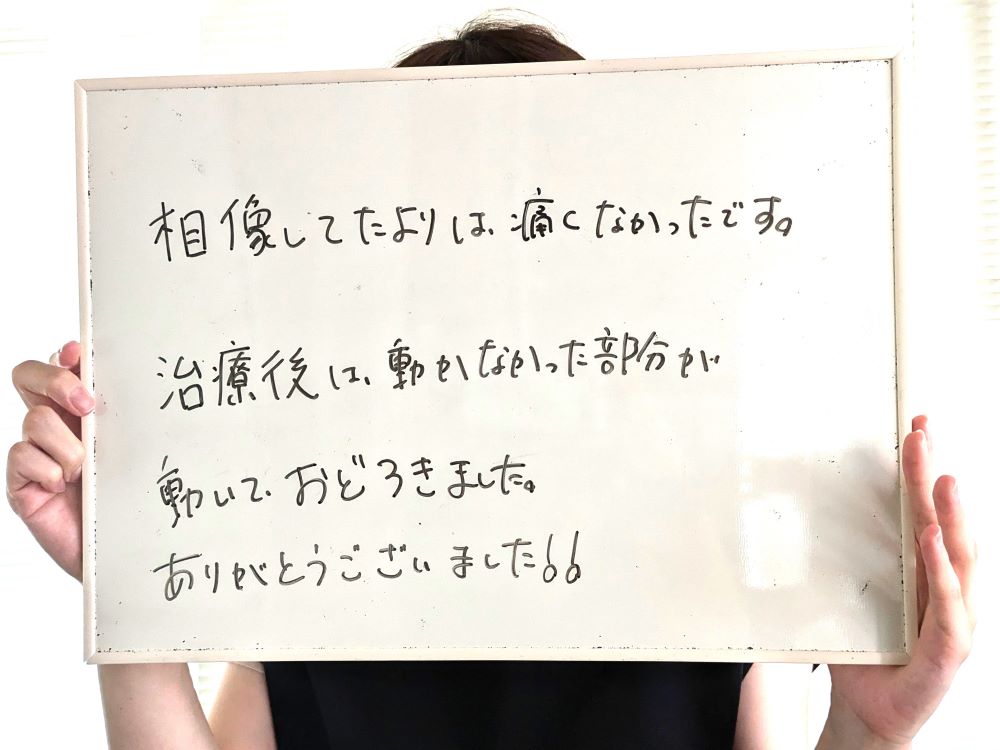 相像してたよりは、痛くなかったです。
治療後は、動かなかった部分が
動いて、おどろきました。
ありがとうございました!!